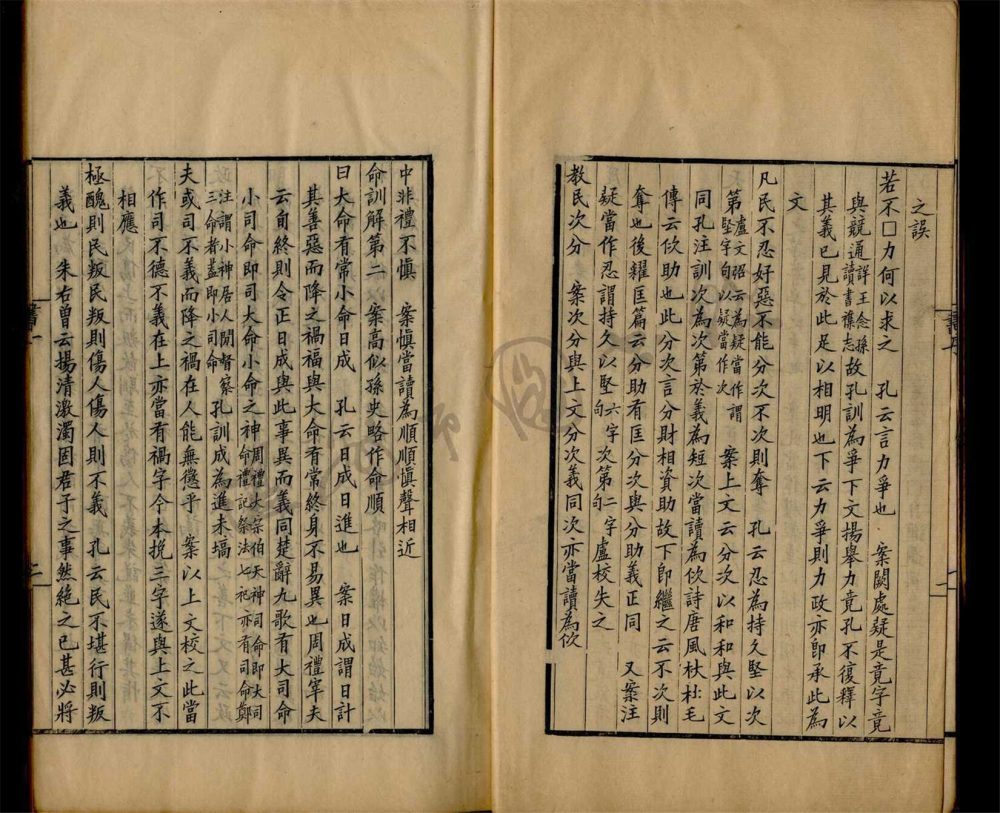 之誤
若不□力何以求之　孔云言力爭也　案闕處疑是竟字竟
與競通詳王念孫讀書雜志故孔訓為爭下文揚舉力竟孔不復釋以
其義已見於此足以相明也下云力爭則力政亦卽承此為
文
凡民不忍好惡不能分次不次則奪　孔云忍為持久堅以次
第盧文弨云為疑當作謂堅字句以疑當作次　案上文云分次以和和與此文
同孔注訓次為次第於義為短次當讀為佽詩唐風杕杜毛
傳云佽助也此分次言分財相資助故下卽繼之云不次則
奪也後糴匡篇云分助有匡分次與分助義正同　又案注
疑當作忍謂持久以堅句六字次第句二字盧校失之
教民次分　案次分與上文分次義同次亦當讀為佽
中非禮不慎　案慎當讀為順順慎聲相近
命訓解第二　案高似孫史略作命順
曰大命有常小命日成　孔云日成日進也　案日成謂日計
其善惡而降之禍福與大命有常終身不易異也周禮宰夫
云旬終則令正日成與此事異而義同楚辭九歌有大司命
小司命卽司大命小命之神周禮大宗伯天神司命卽大司命禮記祭法七祀亦有司命鄭
注謂小神居人間督察三命者蓋卽小司命孔訓成為進未塙
夫或司不義而降之禍在人能無懲乎　案以上文校之此當
作司不德不義在上亦當有禍字今本挩三字遂與上文不
相應
極醜則民叛民叛則傷人傷人則不義　孔云民不堪行則叛
義也　朱右曾云揚清激濁固君子之事然絶之已甚必將